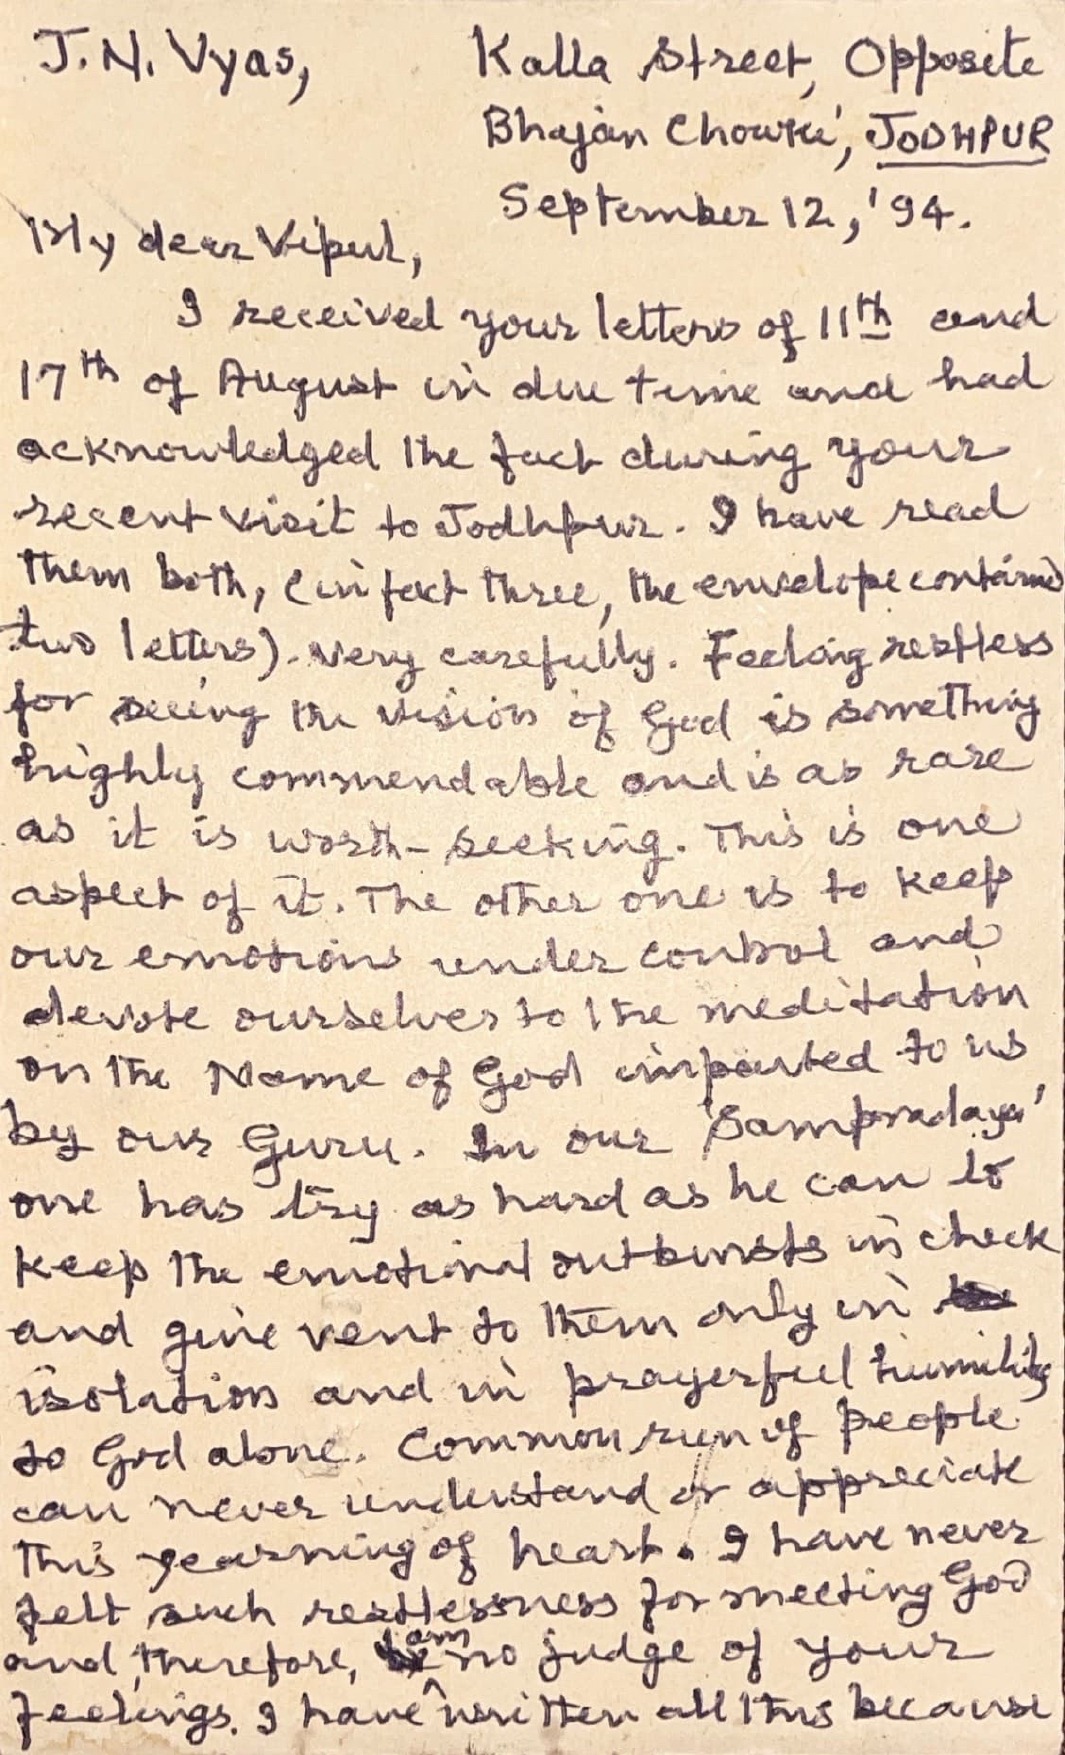 J. N. Vyas, Kalla Street, Opposite
Bhajan Chowki, JODHPUR
September 12, '94.
My dear Vipul,
I received your letters of 11th and
17th of August in due time and had
acknowledged the fact during your
recent visit to Jodhpur. I have read
them both, (in fact three, the envelope contained
two letters). very carefully. Feeling restless
for seeing the vision of God is something
highly commendable and is as rare
as it is worth-seeking. This is one
aspect of it. The other one is to keep
our emotions under control and
devote ourselves to the meditation
on the Name of God imparted to us
by our Guru. In our 'Sampradaya'
one has try as hard as he can to
keep the emotional outbursts in check
and give vent to them only in
isolation and in prayerful humility
to God alone. Common run of people
can never understand or appreciate
this yearning of heart. I have never
felt such restlessness for meeting God
and, therefore, am no judge of your
feelings. I have written all this because